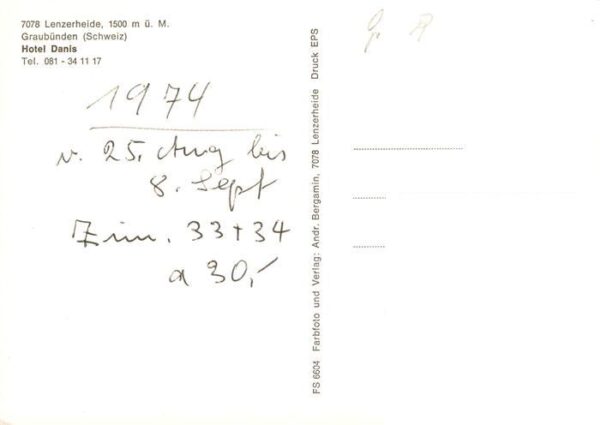 7078 Lenzerheide, 1500 m ü. M.
Graubünden (Schweiz)
Hotel Danis
Tel. 081 - 34 11 17
1974
v. 25. Aug bis
8. Sept
Zim. 33 + 34
a 30,-
FS 6604 Farbfoto und Verlag: Andr. Bergamin, 7078 Lenzerheide Druck EPS